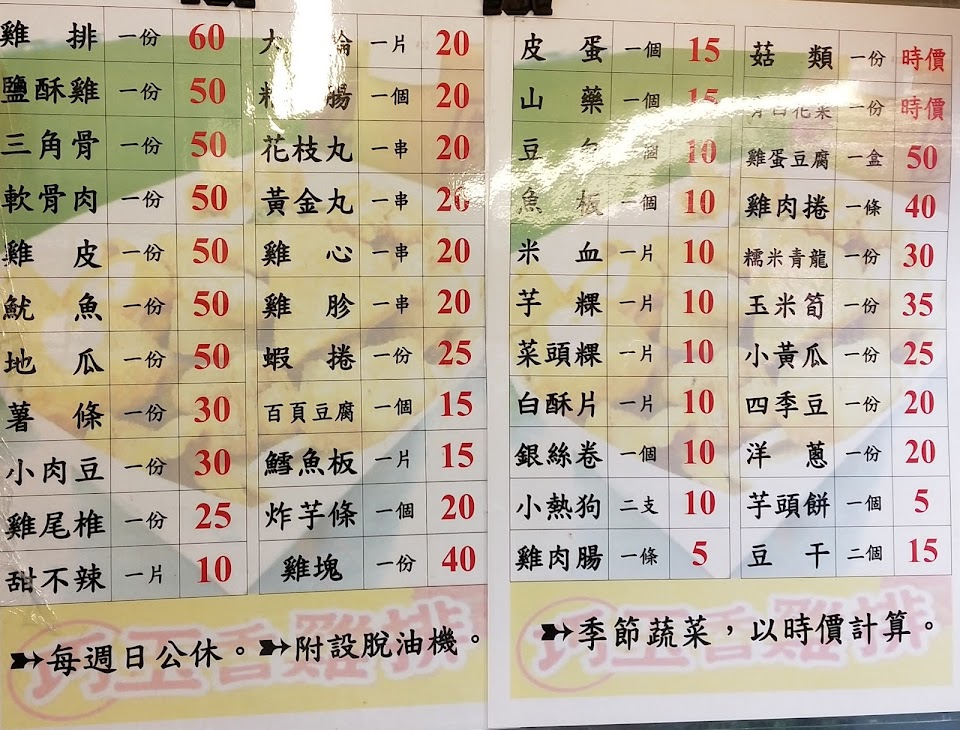 雞排 一份 60
鹽酥雞 一份 50
三角骨 一份 50
軟骨肉 一份 50
雞皮 一份 50
魷魚 一份 50
地瓜 一份 50
薯條 一份 30
小肉豆 一份 30
雞尾椎 一份 25
甜不辣 一片 10
大 一片 20
腸 一個 20
花枝丸 一串 20
黃金丸 一串 20
雞心 一串 20
雞胗 一串 20
蝦捲 一份 25
百頁豆腐 一個 15
鱈魚板 一片 15
炸芋條 一個 20
雞塊 一份 40
每週日公休。
附設脫油機。
巧玉香雞排
皮蛋 一個 15
山藥 一個 15
豆 個 10
魚板 一個 10
米血 一片 10
芋粿 一片 10
菜頭粿 一片 10
白酥片 一片 10
銀絲卷 一個 10
小熱狗 二支 10
雞肉腸 一條 5
菇類 一份 時價
青白花菜 一份 時價
雞蛋豆腐 一盒 50
雞肉捲 一條 40
糯米青龍 一份 30
玉米筍 一份 35
小黃瓜 一份 25
四季豆 一份 20
洋蔥 一份 20
芋頭餅 一個 5
豆干 二個 15
季節蔬菜，以時價計算。
巧玉香雞排